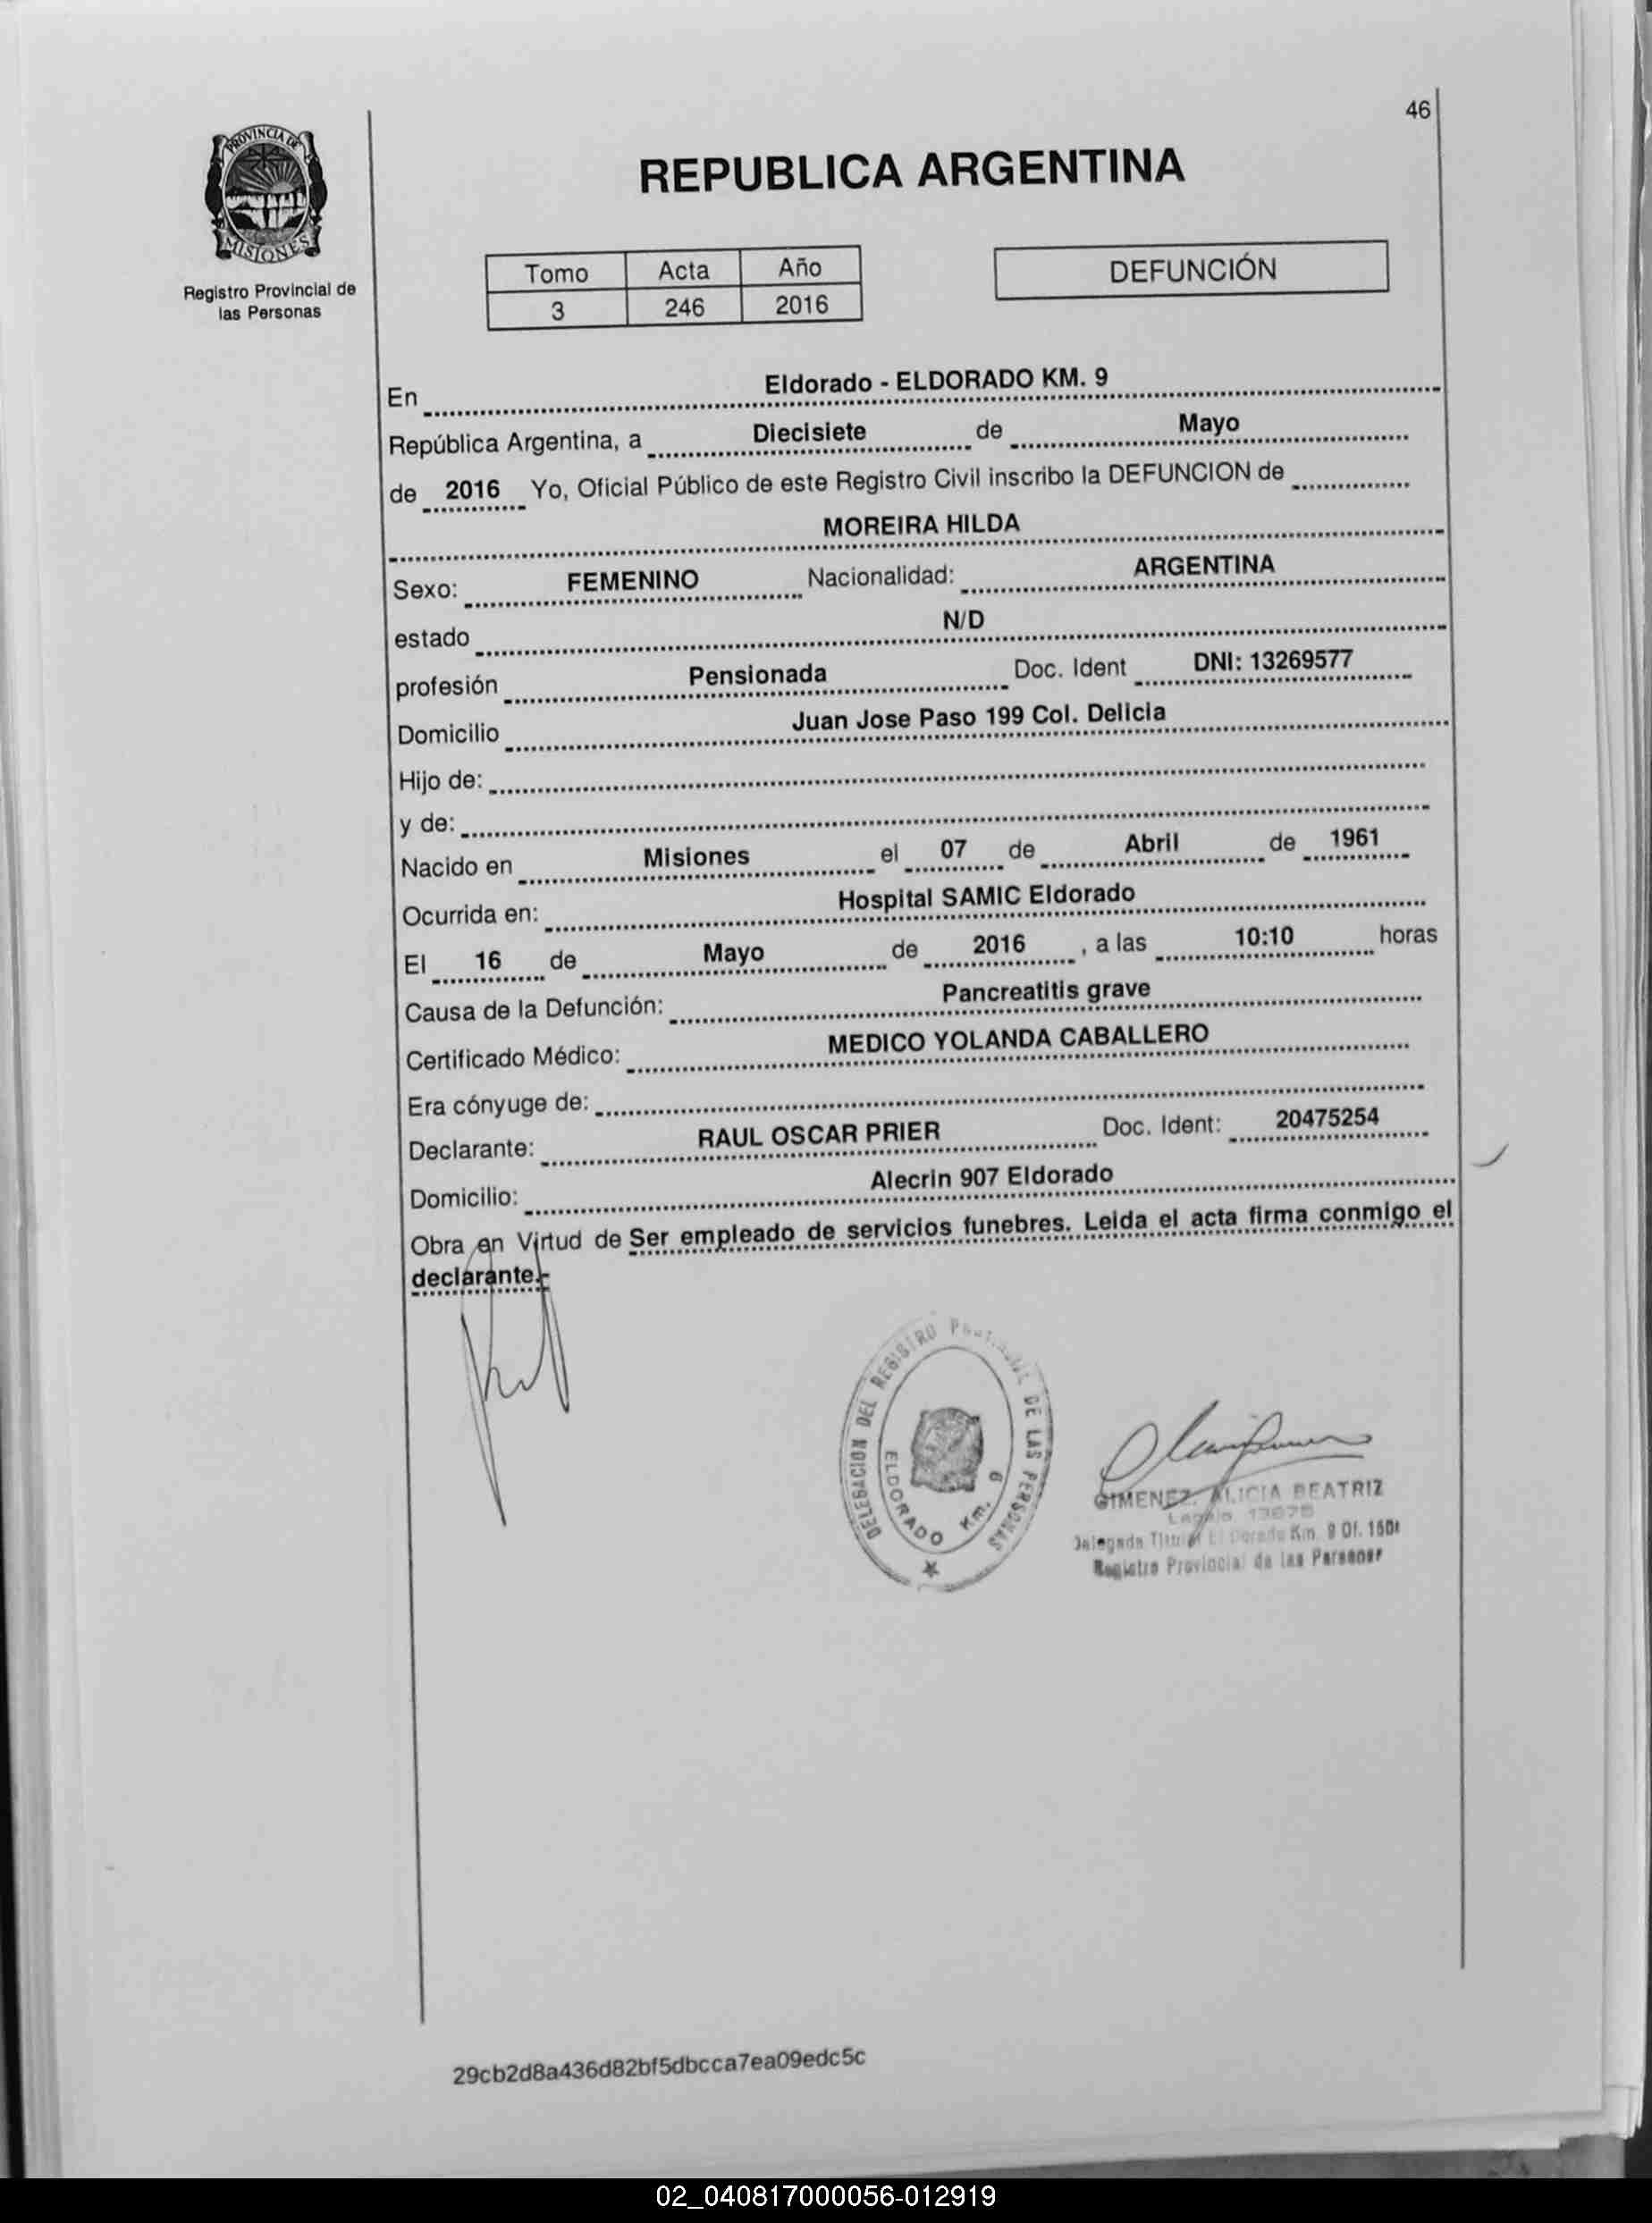 46
PROVINCIA DE
MISIONES
Registro Provincial de
las Personas
REPUBLICA ARGENTINA
Tomo Acta Año
3 246 2016
DEFUNCIÓN
En Eldorado - ELDORADO KM. 9
República Argentina, a Diecisiete de Mayo
de 2016 Yo, Oficial Público de este Registro Civil inscribo la DEFUNCION de
MOREIRA HILDA
Sexo: FEMENINO Nacionalidad: ARGENTINA
estado N/D
profesión Pensionada Doc. Ident DNI: 13269577
Domicilio Juan Jose Paso 199 Col. Delicia
Hijo de:
y de:
Nacido en Misiones el 07 de Abril de 1961
Ocurrida en: Hospital SAMIC Eldorado
El 16 de Mayo de 2016 , a las 10:10 horas
Causa de la Defunción: Pancreatitis grave
Certificado Médico: MEDICO YOLANDA CABALLERO
Era cónyuge de:
Declarante: RAUL OSCAR PRIER Doc. Ident: 20475254
Domicilio: Alecrin 907 Eldorado
Obra en Virtud de Ser empleado de servicios funebres. Leida el acta firma conmigo el
declarante.-
DELEGACION DEL REGISTRO DE LAS PERSONAS
ELDORADO Km. 9
GIMENEZ, ALICIA BEATRIZ
Delegada Titular Km. 9 Of.
Registro Provincial de las Personas
29cb2d8a436d82bf5dbcca7ea09edc5c
02_040817000056-012919